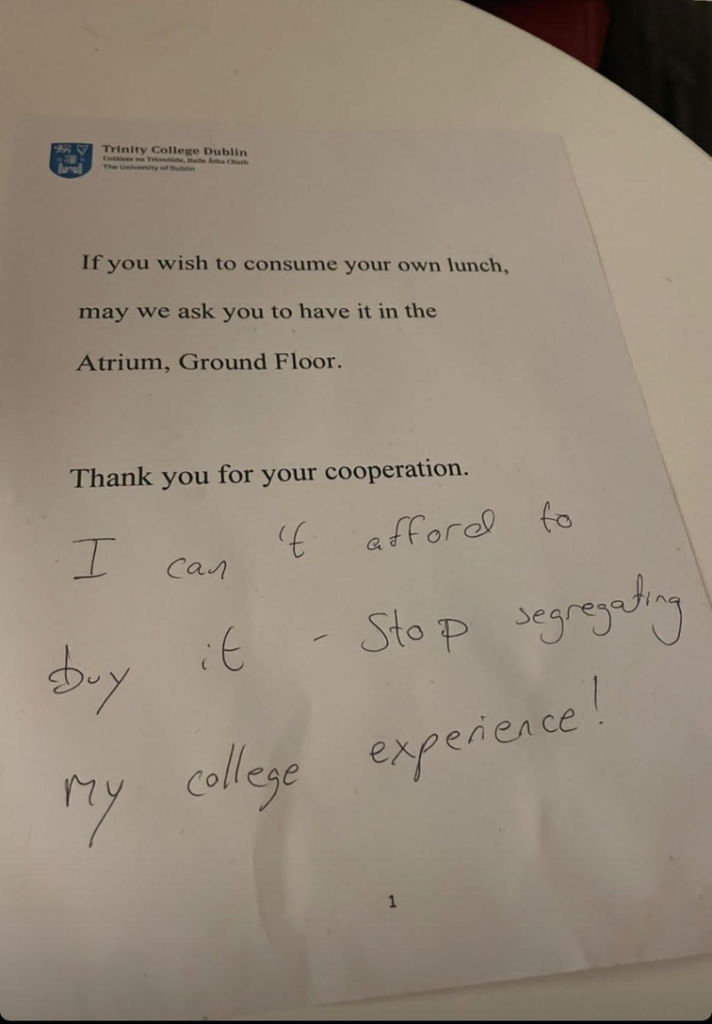 Trinity College Dublin
Coláiste na Tríonóide, Baile Átha Cliath
The University of Dublin
If you wish to consume your own lunch,
may we ask you to have it in the
Atrium, Ground Floor.
Thank you for your cooperation.
I can't afford to
buy it - Stop segregating
my college experience!
1